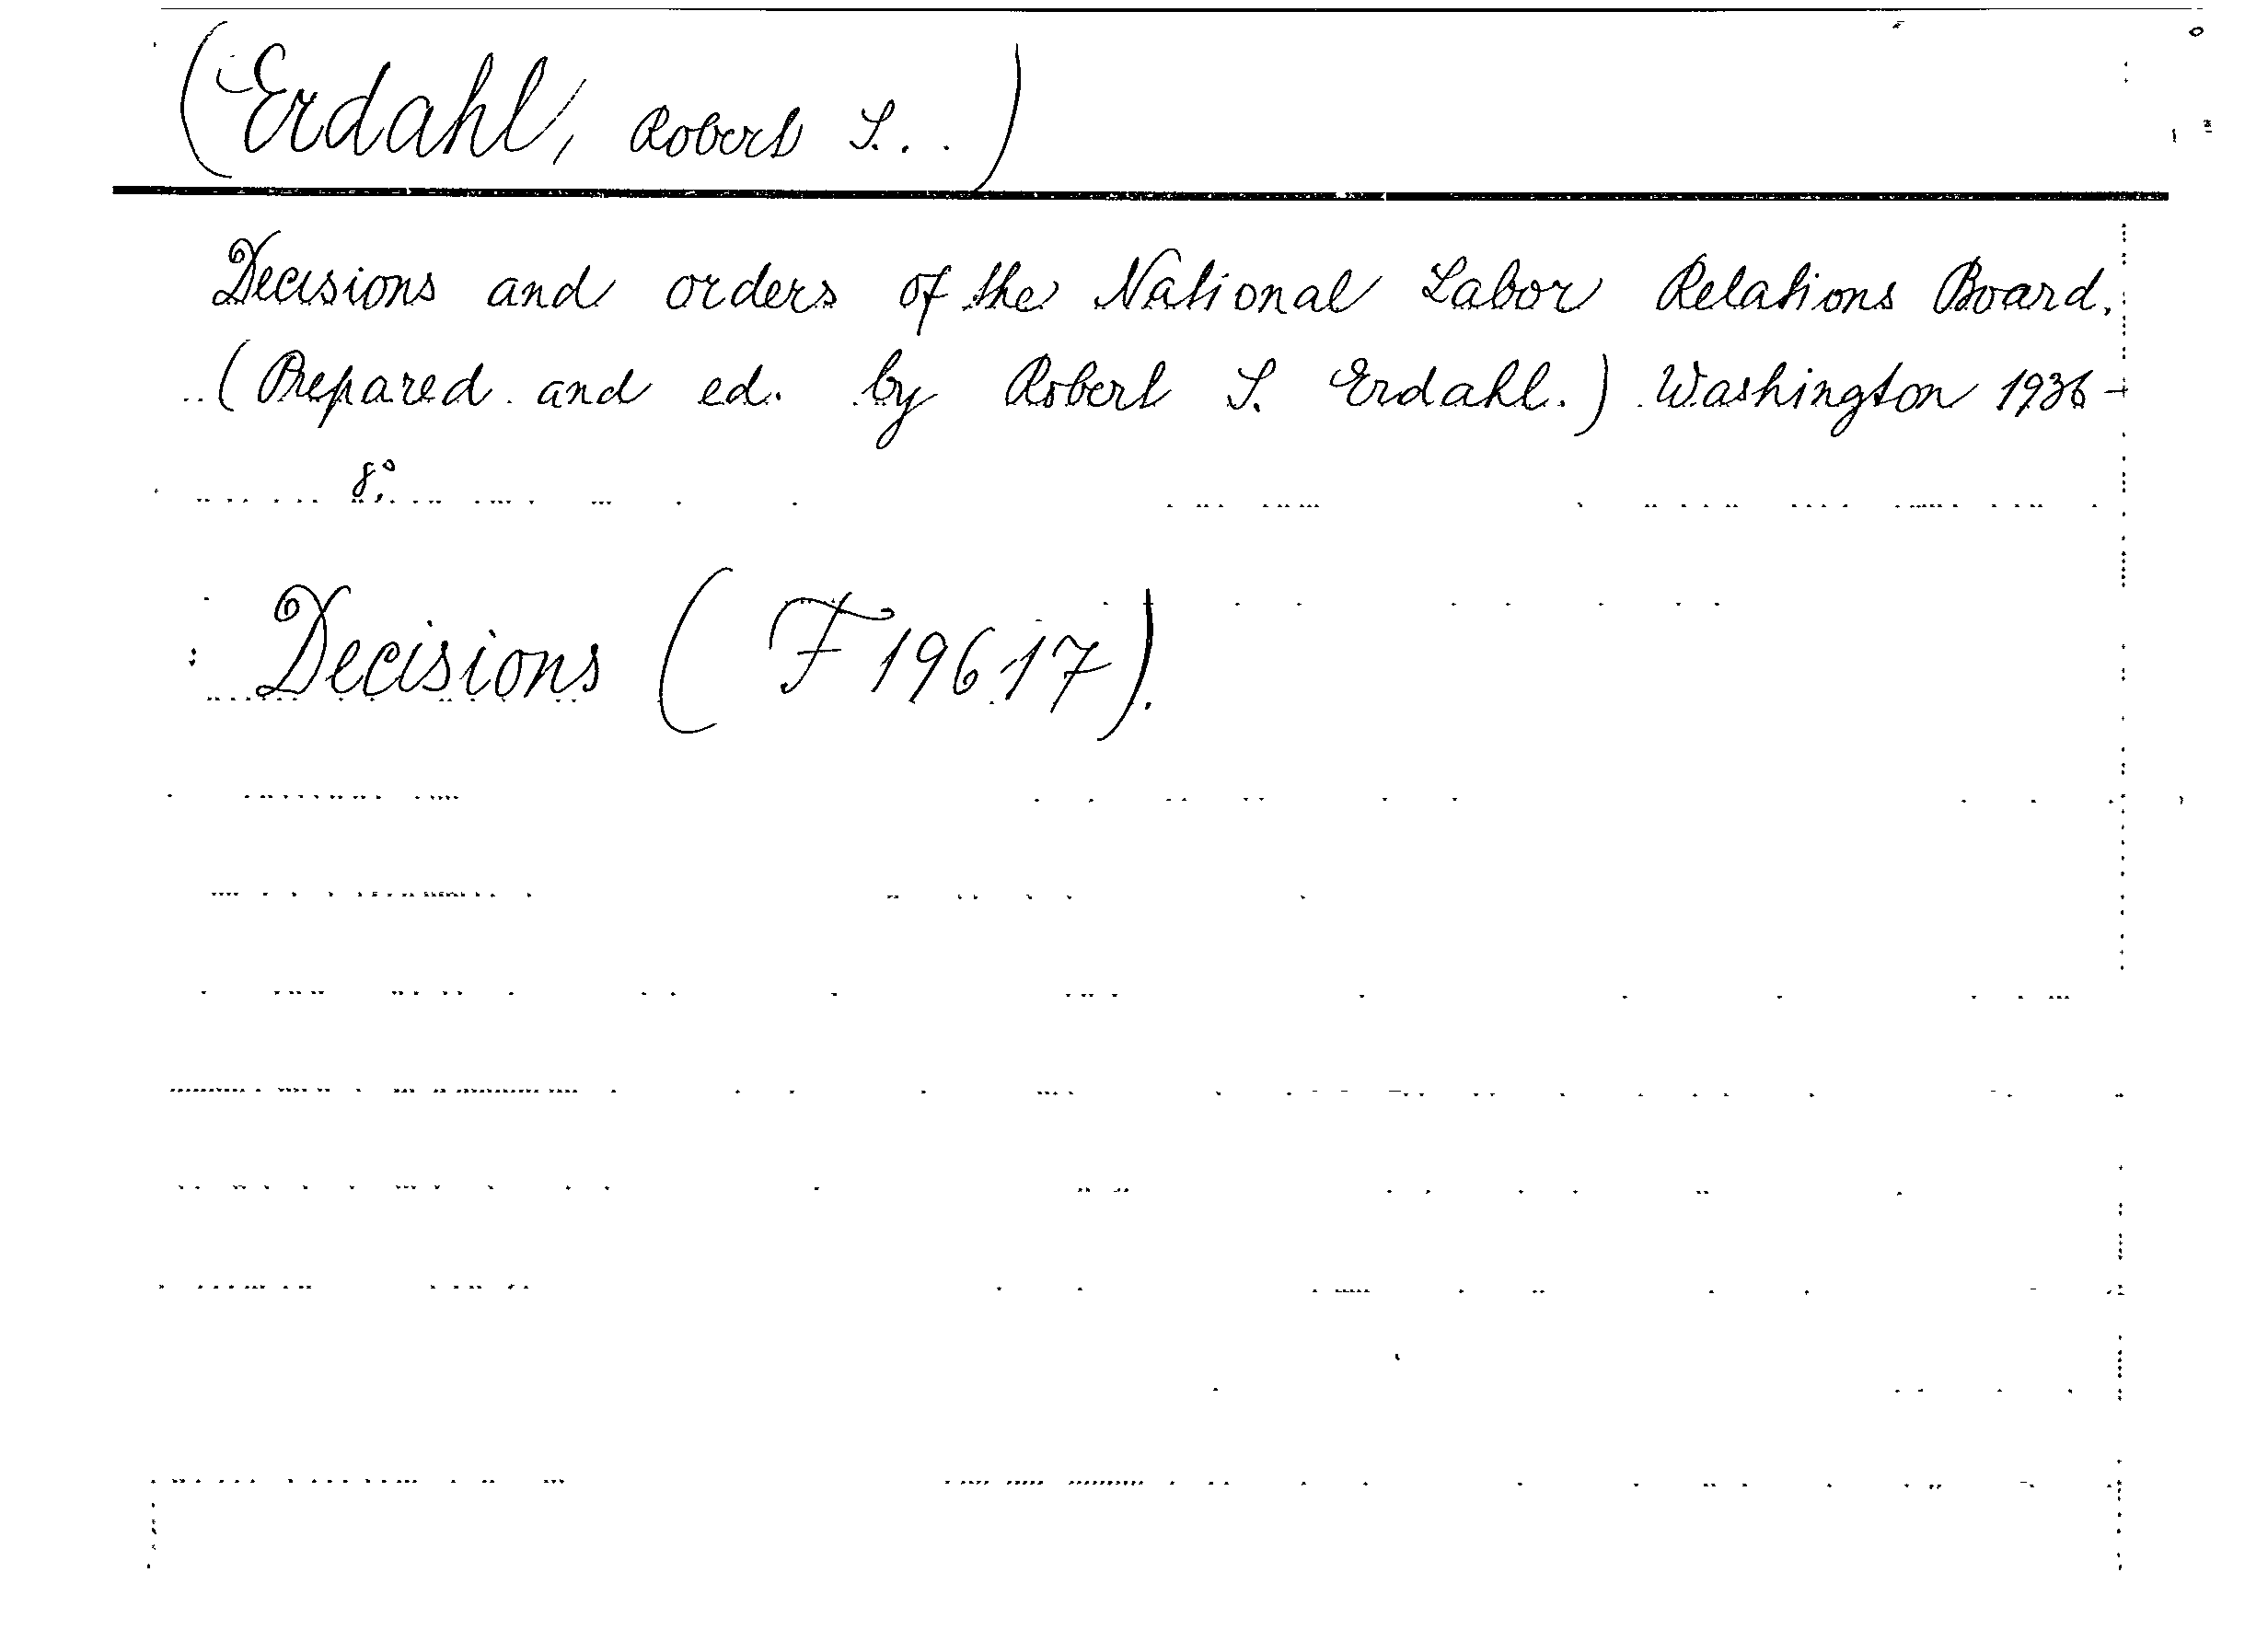 (Erdahl, Robert S..)
Decisions and orders of the National Labor Relations Board.
(Prepared and ed. by Robert S. Erdahl.) Washington 1936-
8°.
Decisions (F 19617).